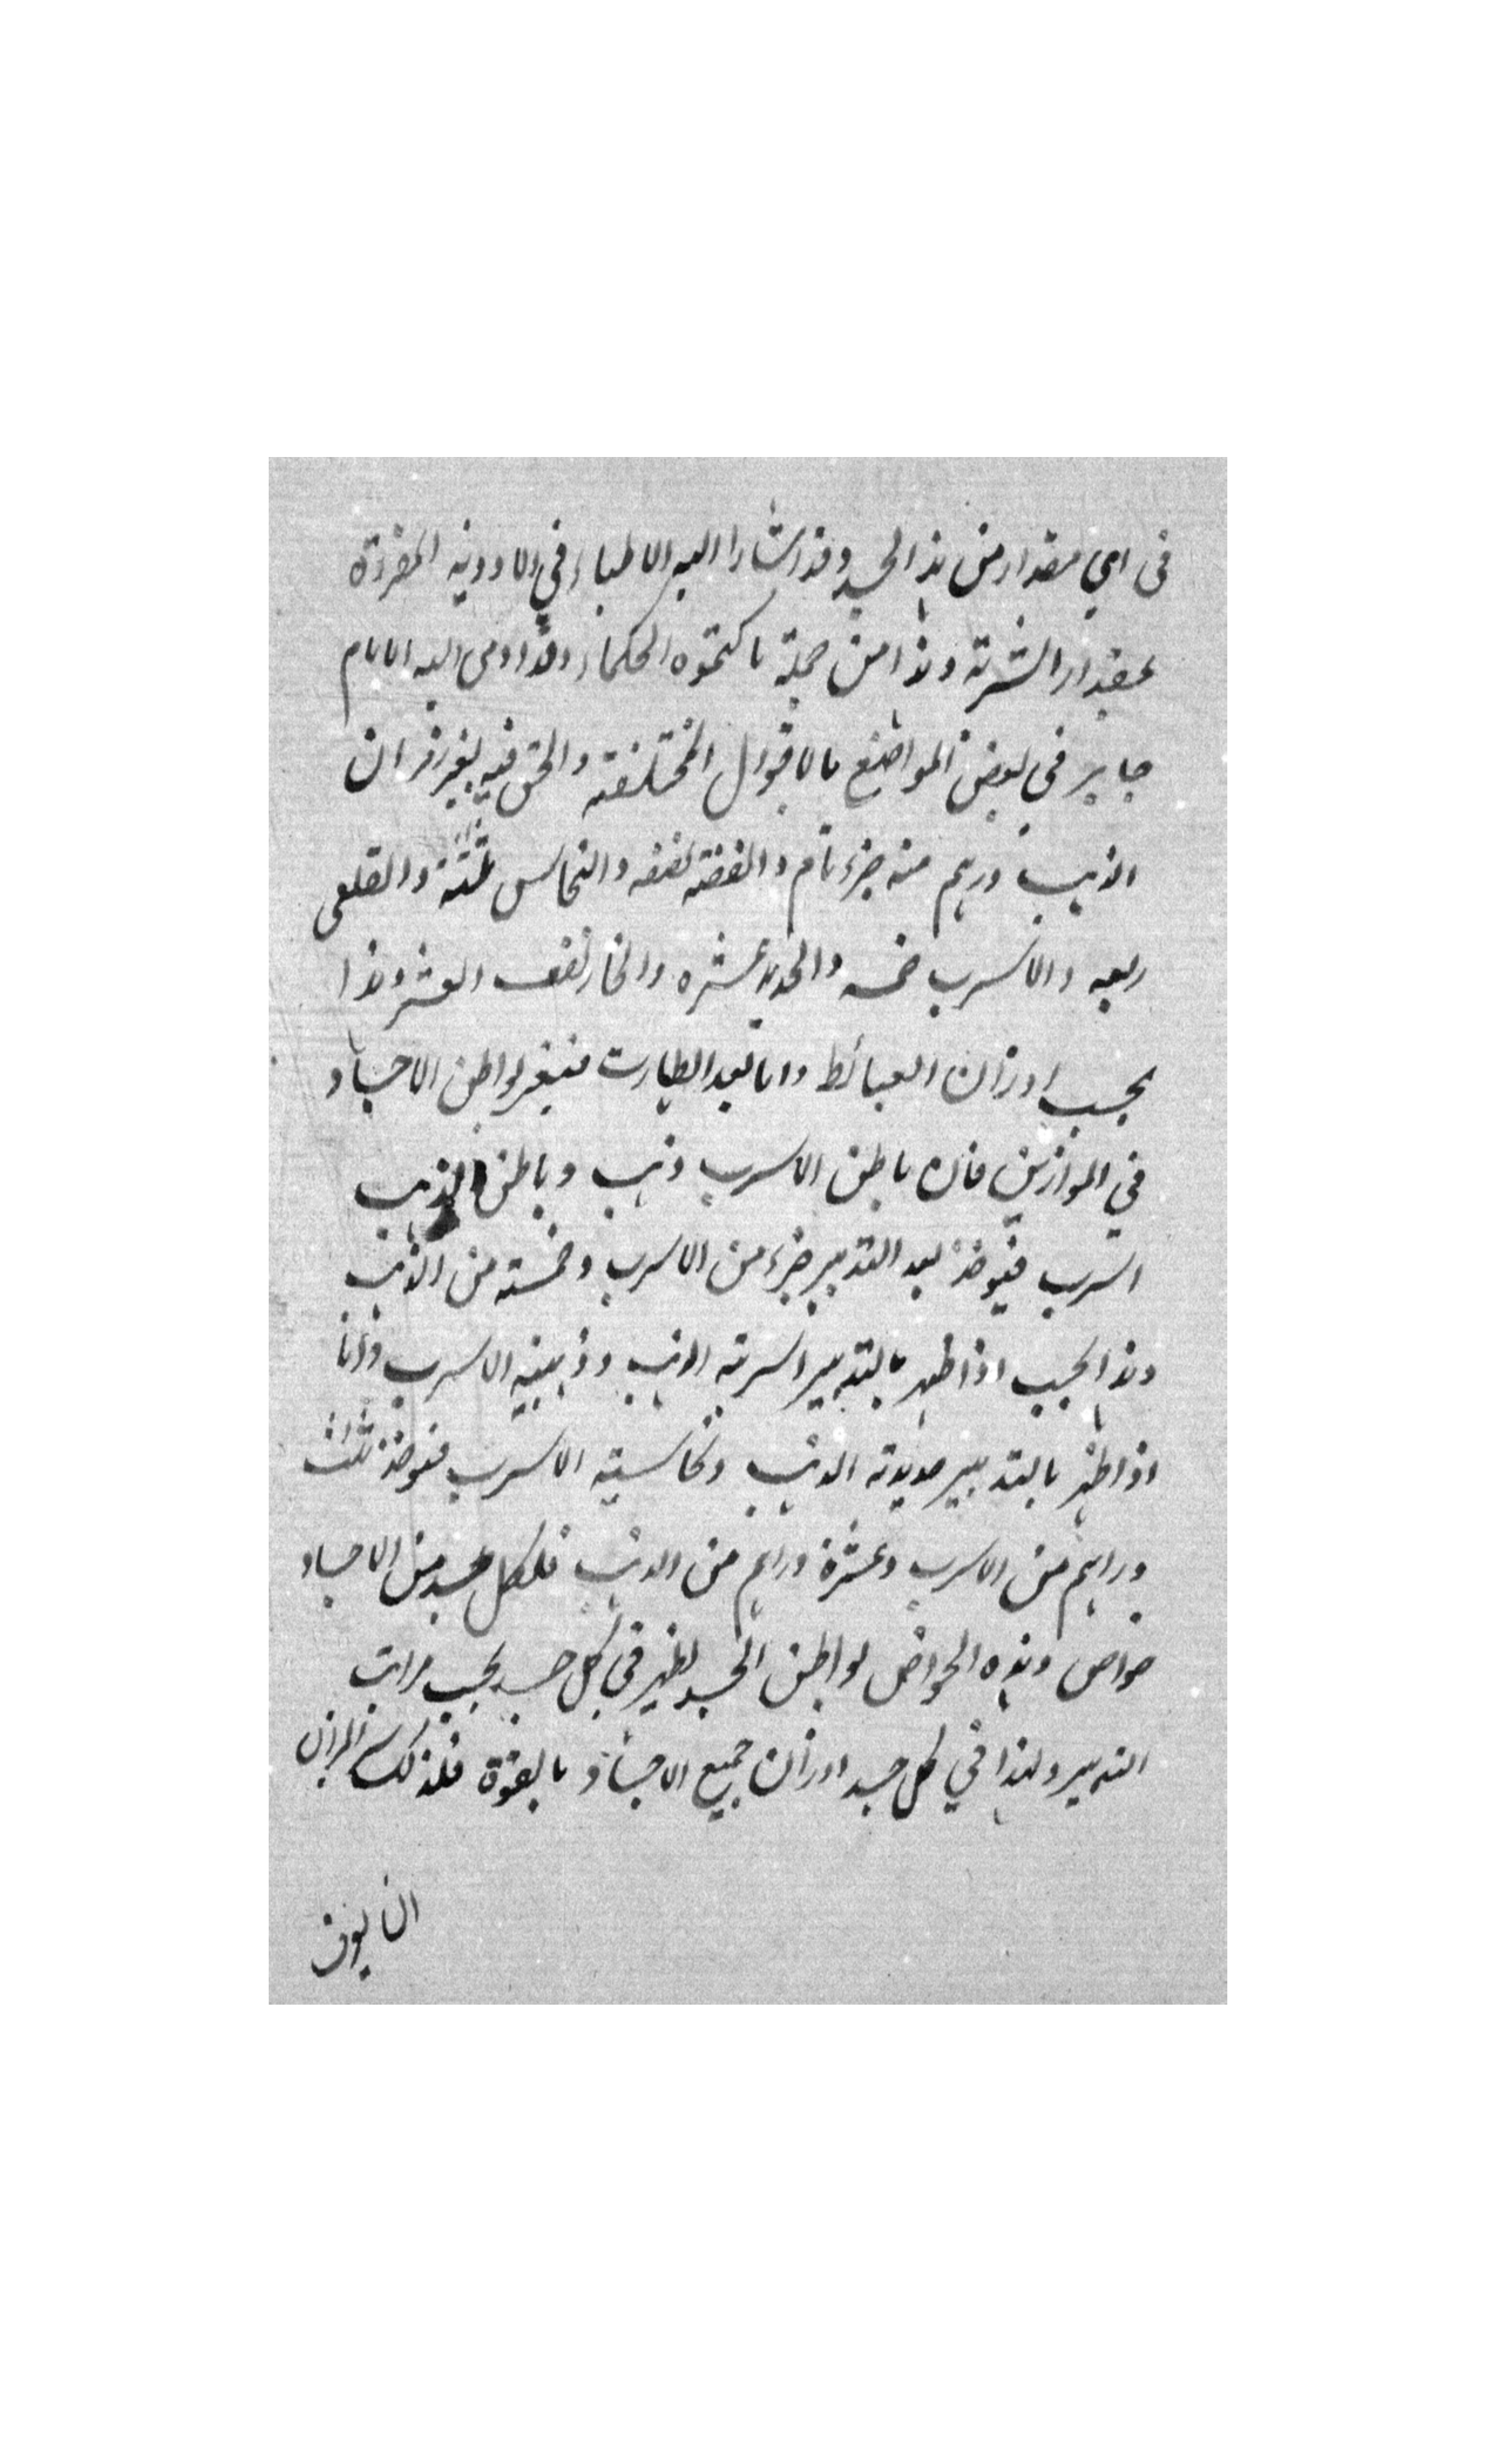 فى اي مقدار من هذا الجسد وقد اشار اليه الاطباء في الادوية المفردة
بمقدار الشربة وهذا من جملة ما كتموه الحكماء وقد اومى اليه الامام
جابر في بعض المواضع بالاقوال المختلفة والحق فيه بغير رمز ان
الذهب درهم منه جزء تام والفضة نصفه والنحاس ثلثه والقلعى
ربعه والاسرب خمسه والحديد عشره والخار نصف العشر وهذا
بحسب اوزان العبائط واما بعد الطهارت فتغير بواطن الاجساد
في الموازين فان باطن الاسرب ذهب وباطن الذهب
اسرب فيؤخذ بعد التدبير جزء من الاسرب وخمسة من الذهب
وهذا بحسب اذا ظهر بالتدبير اسربية الذهب وذهبية الاسرب واما
اذا ظهر بالتدبير حديدية الذهب ونحاسية الاسرب فيؤخذ ثلث
دراهم من الاسرب وعشرة دراهم من الذهب فلكل جسد من الاجساد
خواص وهذه الخواص لبواطن الجسد يظهر في كل جسد بحسب مراتب
التدبير ولهذا في كل جسد اوزان جميع الاجساد بالقوة فلذلك الميزان